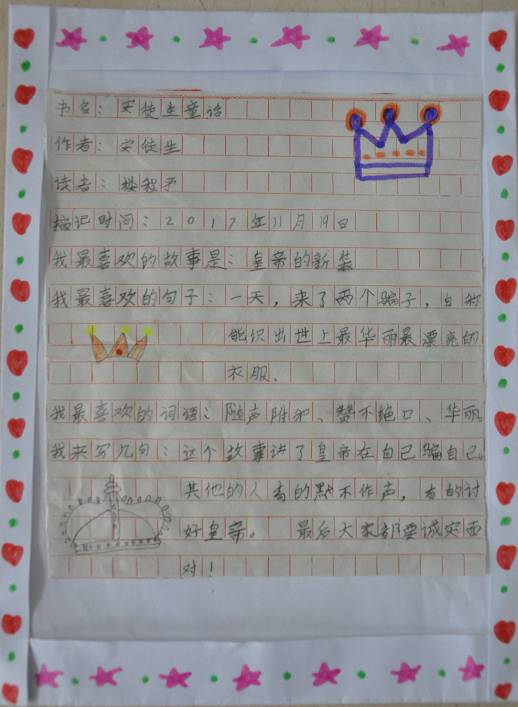 书名：安徒生童话
作者：安徒生
读者：楼
记时间：2017年11月19日
我最喜欢的故事是：皇帝的新装
我最喜欢的句子：一天，来了两个骗子，自称
能织出世上最华丽最漂亮的
衣服.
我最喜欢的词语：随声附和、赞不绝口、华丽
我来写几句：这个故事讲了皇帝在自己骗自己。
其他的人有的默不作声，有的讨
好皇帝。 最后大家都要诚实面
对！